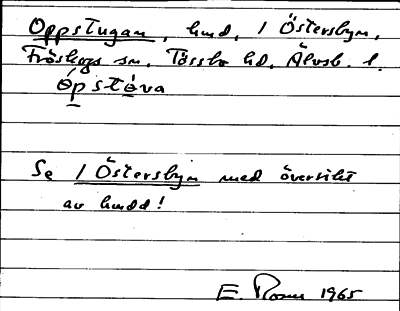 Oppstugan, hmd, 1 Östersbyn,
Fröskogs sn, Tössbo hd, Älvsb. l.
Ópstòva
Se 1 Östersbyn med översikt
av hmdd!
E. Rosen 1965